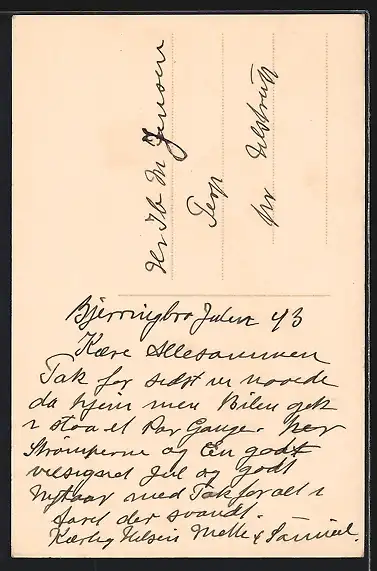 Hr Ib M Jensen
Terp
pr
Bjerringbro Julen 43
Kære Allesammen
Tak for sidst vi naaede
da hjem men Bilen gik
i staa et Par Gange. her
Strømperne og En godt
velsignet Jul og godt
Nytaar med Tak for alt i
Aaret der svandt.
Kærlig Hilsen Mette & Samuel.